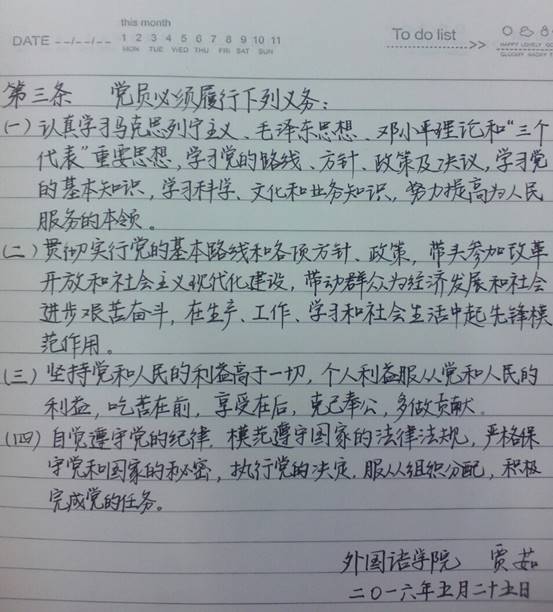 this month
DATE --/--/-- 1 2 3 4 5 6 7 8 9 10 11
MON TUE WED THU FRI SAT SUN
To do list >>
HAPPY LOVELY
第三条 党员必须履行下列义务：
(一) 认真学习马克思列宁主义、毛泽东思想、邓小平理论和“三个
代表”重要思想，学习党的路线、方针、政策及决议，学习党
的基本知识，学习科学、文化和业务知识，努力提高为人民
服务的本领。
(二) 贯彻实行党的基本路线和各项方针、政策，带头参加改革
开放和社会主义现代化建设，带动群众为经济发展和社会
进步艰苦奋斗，在生产、工作、学习和社会生活中起先锋模
范作用。
(三) 坚持党和人民的利益高于一切，个人利益服从党和人民的
利益，吃苦在前，享受在后，克己奉公，多做贡献。
(四) 自觉遵守党的纪律，模范遵守国家的法律法规，严格保
守党和国家的秘密，执行党的决定，服从组织分配，积极
完成党的任务。
外国语学院 贾茹
二〇一六年五月二十五日